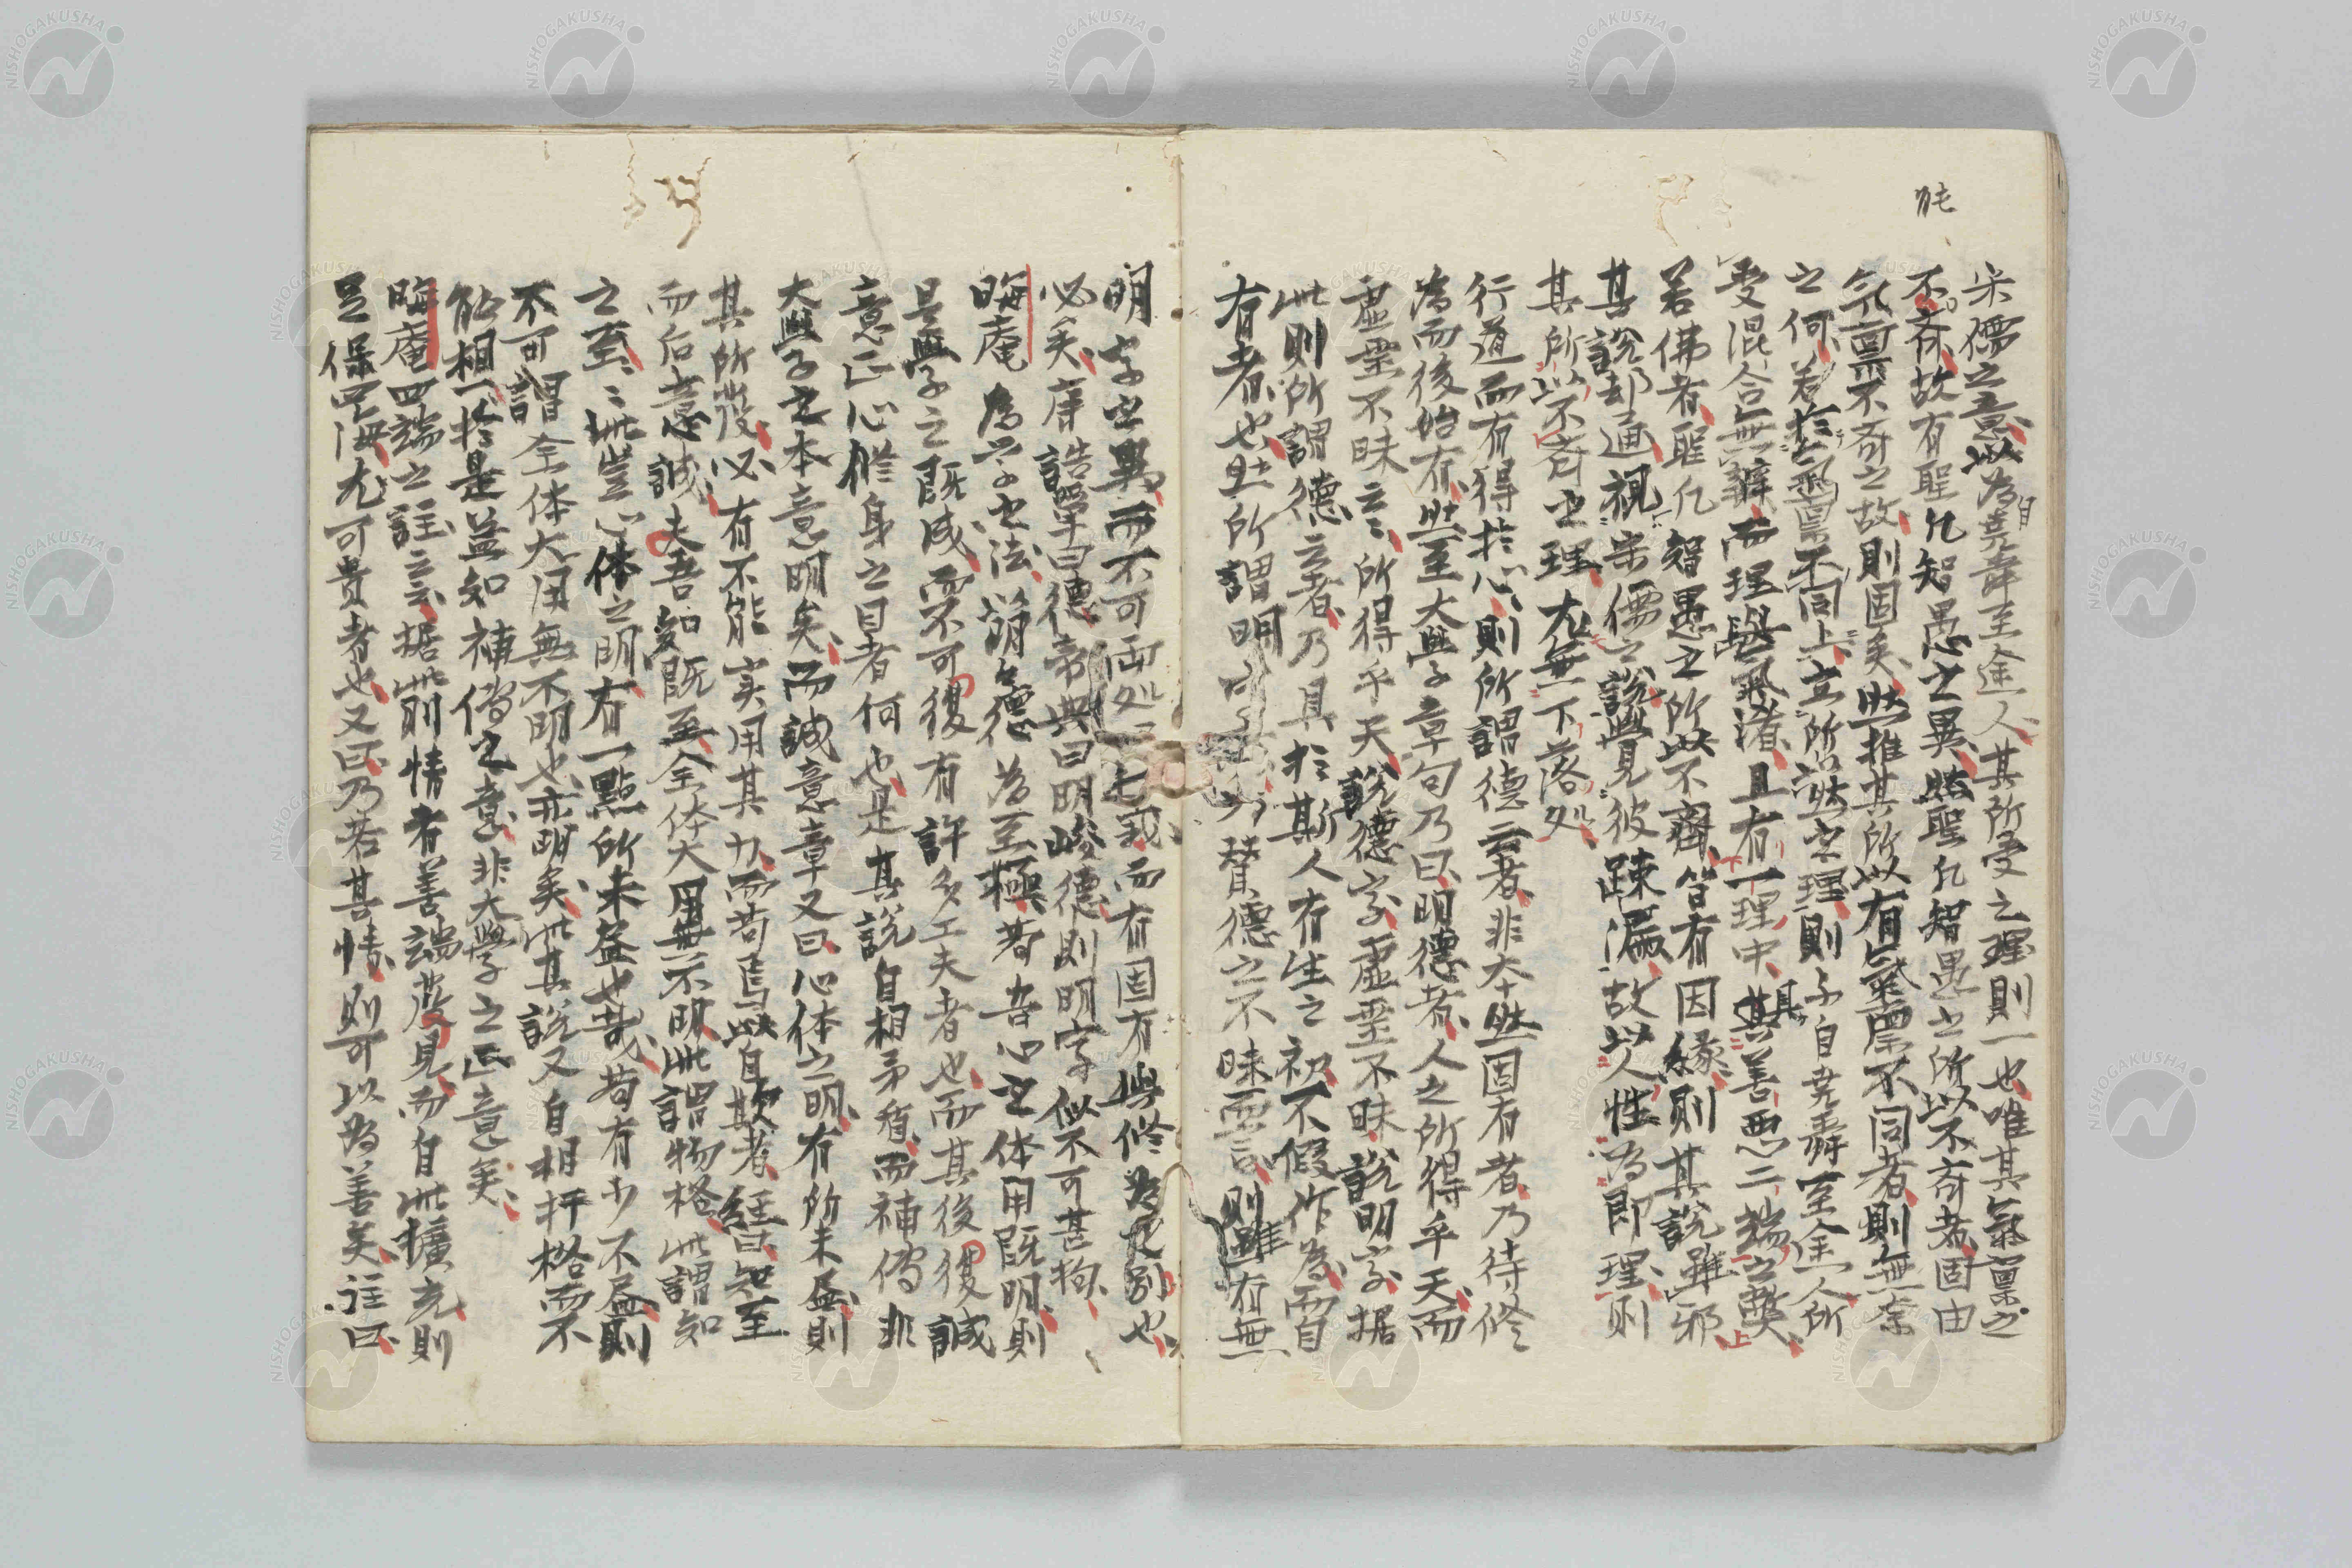 能
宋儒之意以為自堯舜至塗人其所受之理則一也唯其氣稟之
不斉故有聖凡智愚之異然聖凡智愚之所以不斉者固由
氣稟不斉之故則固矣然推其所以有氣稟不同者則無奈
之何若於氣稟不同上立所以然之理則自堯舜至塗人所
受混合無罅而理與氣淆且有一理中具其善悪二端之弊
若佛者聖凡智愚之所以不齊皆有因緣則其說雖邪
其說却通視宋儒之說覺見彼疎漏故以人性為即理則
其所以不斉之理尤無下落処
行道而有得於心則所謂德云者非本然固有者乃待修
為而後始有然至大學章句乃曰明德者人之所得乎天而
虛靈不昧云云所得乎天說德字虛靈不昧說明字据
此則所謂德云者乃具於斯人有生之初不假作為而自
有者也且所謂明字為賛德之不昧而言則雖有無
明字之異而不可両処一七我而有固有與修為之別也
必矣康誥單曰德帝典曰明峻德則明字似不可甚拘
晦庵為学之法以明明德為至極若吾心之体用既明則
是學之既成而不可復有許多工夫者也而其後復誠
意正心修身之目者何也是其說自相矛盾而補傳非
大學之本意明矣而誠意章又曰心体之明有所未盡則
其所發必有不能実用其力而苟焉以自欺者経曰知至
而后意誠夫吾知既至全体大用無不明此謂物格此謂知
之至云云此豈心体之明有一點所未盡也哉苟有少不盡則
不可謂全体大用無不明也亦明矣此其說又自相扞格而不
能相一於是益知補傳之意非大學之正意矣
晦庵四端之註云云据此則情者善端發見而自此擴充則
足保四海尤可貴者也又曰乃若其情則可以為善矣註曰